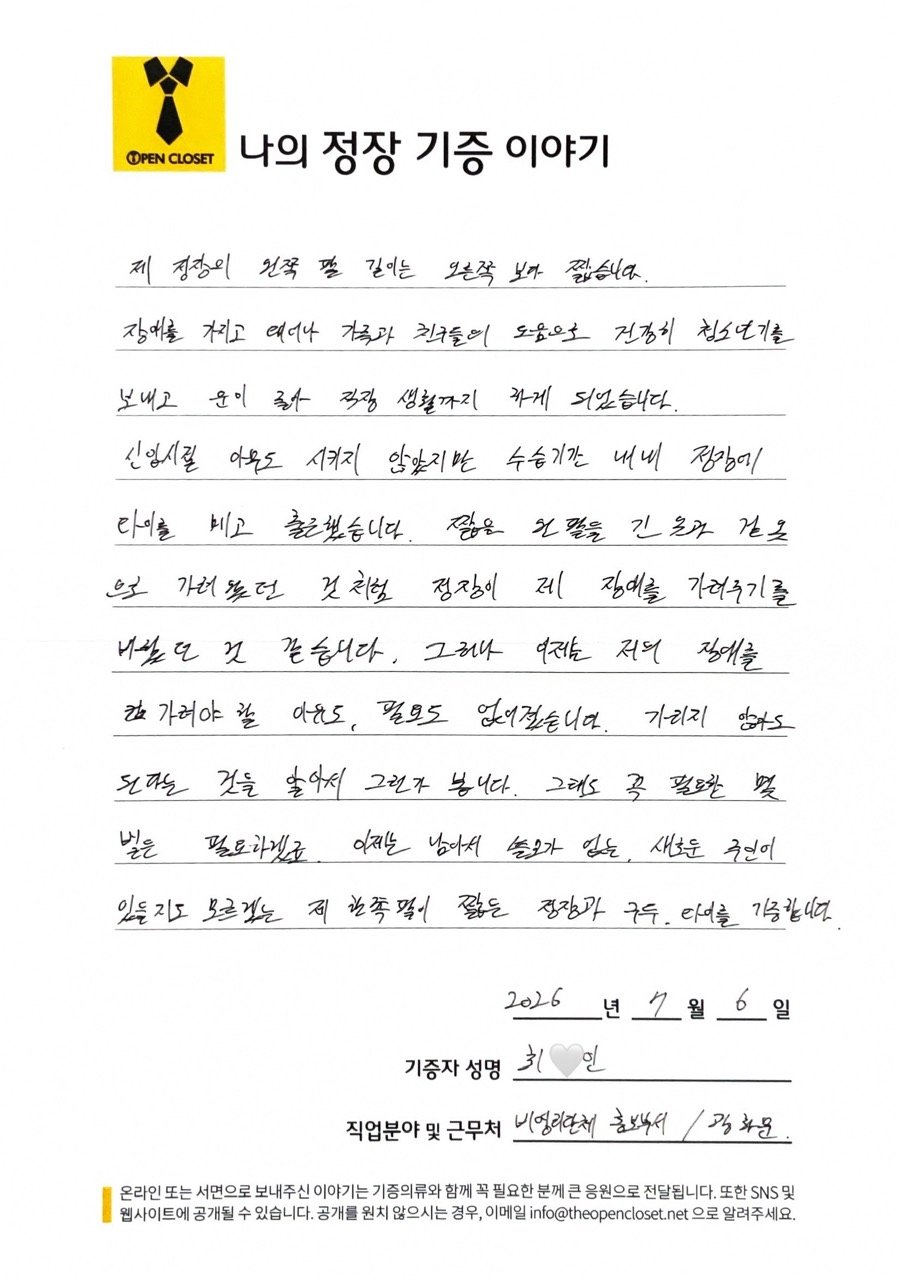 OPEN CLOSET
나의 정장 기증 이야기
제 정장의 왼쪽 팔 길이는 오른쪽 보다 짧습니다.
장애를 가지고 태어나 가족과 친구들의 도움으로 건강히 청소년기를
보내고 운이 좋아 직장 생활까지 하게 되었습니다.
신입시절 아무도 시키지 않았지만 수습기간 내내 정장에
타이를 메고 출근했습니다. 짧은 왼팔을 긴 옷과 겉옷
으로 가려왔던 것처럼 정장이 제 장애를 가려주기를
바랬던 것 같습니다. 그러나 이제는 저의 장애를
가려야 할 이유도, 필요도 없어졌습니다. 가리지 않아도
된다는 것을 알아서 그런가 봅니다. 그래도 꼭 필요한 몇
벌은 필요하겠죠. 이제는 남아서 쓸모가 없는, 새로운 주인이
있을지도 모르겠는 제 한쪽팔이 짧은 정장과 구두, 타이를 기증합니다.
2026 년 7 월 6 일
기증자 성명 최 인
직업분야 및 근무처 비영리단체 홍보부서 / 광화문.
온라인 또는 서면으로 보내주신 이야기는 기증의류와 함께 꼭 필요한 분께 큰 응원으로 전달됩니다. 또한 SNS 및
웹사이트에 공개될 수 있습니다. 공개를 원치 않으시는 경우, 이메일 info@theopencloset.net 으로 알려주세요.